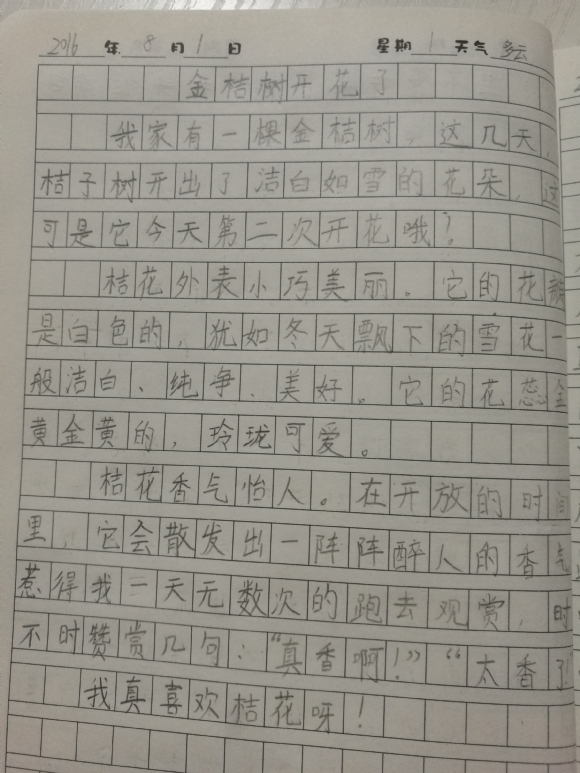 2016年8月1日 星期1天气多云
金桔树开花了
我家有一棵金桔树，这几天，
桔子树开出了洁白如雪的花朵，这
可是它今天第二次开花哦！
桔花外表小巧美丽。它的花瓣
是白色的，犹如冬天飘下的雪花一
般洁白、纯净、美好。它的花蕊金
黄金黄的，玲珑可爱。
桔花香气怡人。在开放的时间
里，它会散发出一阵阵醉人的香气
惹得我一天无数次的跑去观赏，时
不时赞赏几句：“真香啊！”“太香了
我真喜欢桔花呀！